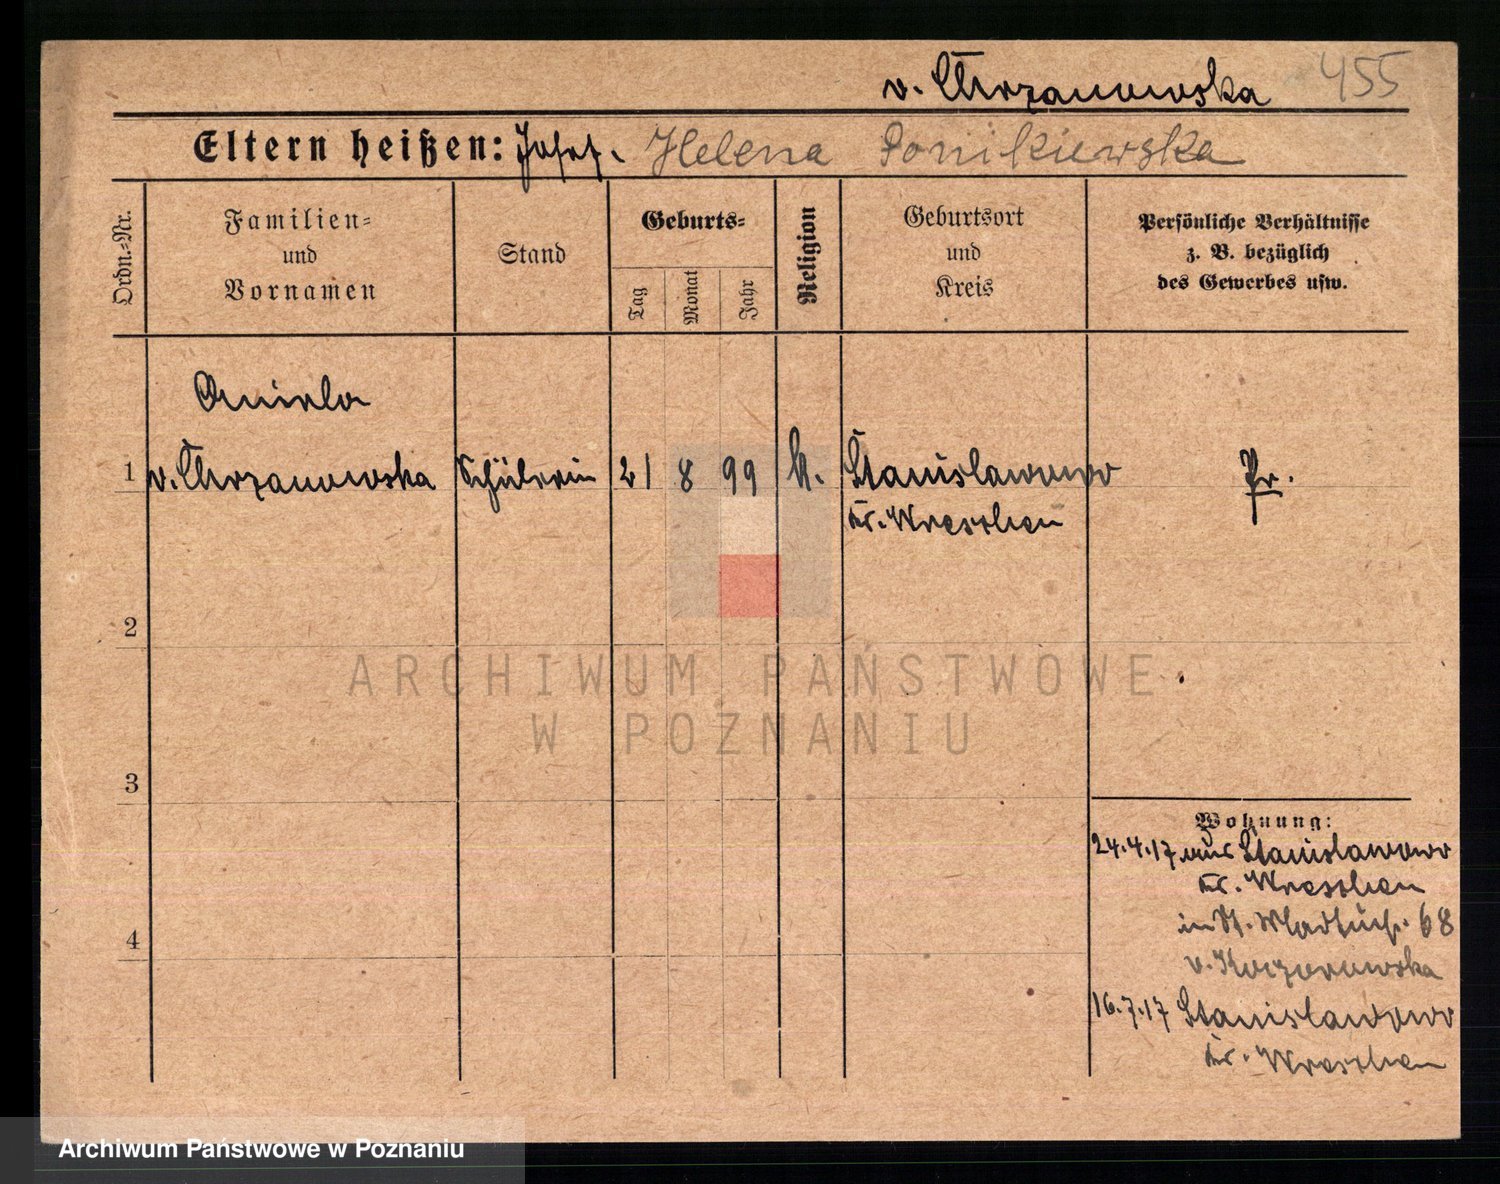 v. Chrzanowska 455
Eltern heißen: Josef. Helena Ponikiewska
Ordn.-Nr.
Familien-
und
Vornamen
Stand
Geburts-
Tag
Monat
Jahr
Religion
Geburtsort
und
Kreis
Persönliche Verhältnisse
z. B. bezüglich
des Gewerbes usw.
Aniela
1 v. Chrzanowska Schülerin 21 8 99 k. Stanislawowo Pr.
Kr. Wreschen
2
3
4
Wohnung:
24.4.17 aus Stanislawowo
Kr. Wreschen
in St. 68
v.
16.7.17 Stanislawowo
Kr. Wreschen
ARCHIWUM PAŃSTWOWE
W POZNANIU
Archiwum Państwowe w Poznaniu